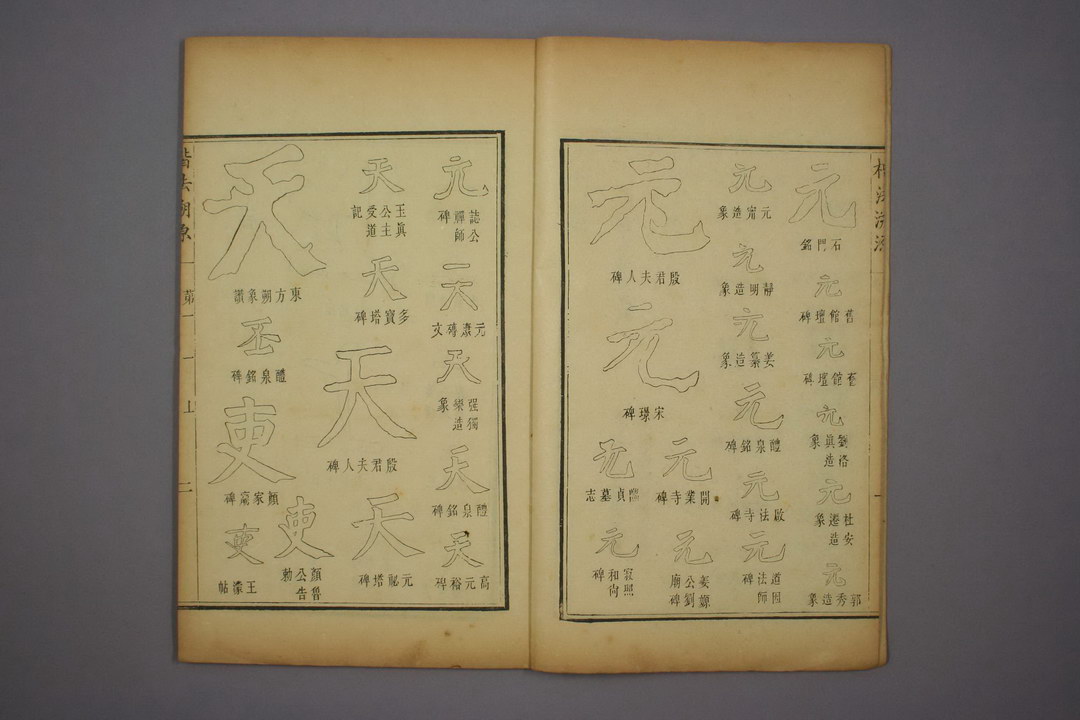 元
石門銘
元
舊館壇碑
元
舊館壇碑
元
劉洛真造象
元
杜安遷造象
元
郭秀造象
元
元甯造象
元
靜明造象
元
姜纂造象
元
醴泉銘碑
元
啟法寺碑
元
道因法師碑
元
殷君夫人碑
元
宋璟碑
元
開業寺碑
元
姜嫄公劉廟碑
元
貞墓志
元
寂照和尚碑
元
誌公禪師碑
天
元康磚文
天
强獨樂造象
天
醴泉銘碑
天
高元裕碑
天
玉真公主受道記
天
多寶塔碑
天
殷君夫人碑
天
元祕塔碑
天
東方朔象讚
丕
醴泉銘碑
吏
顏家廟碑
吏
顏魯公告勅
吏
王濛帖
楷法溯源